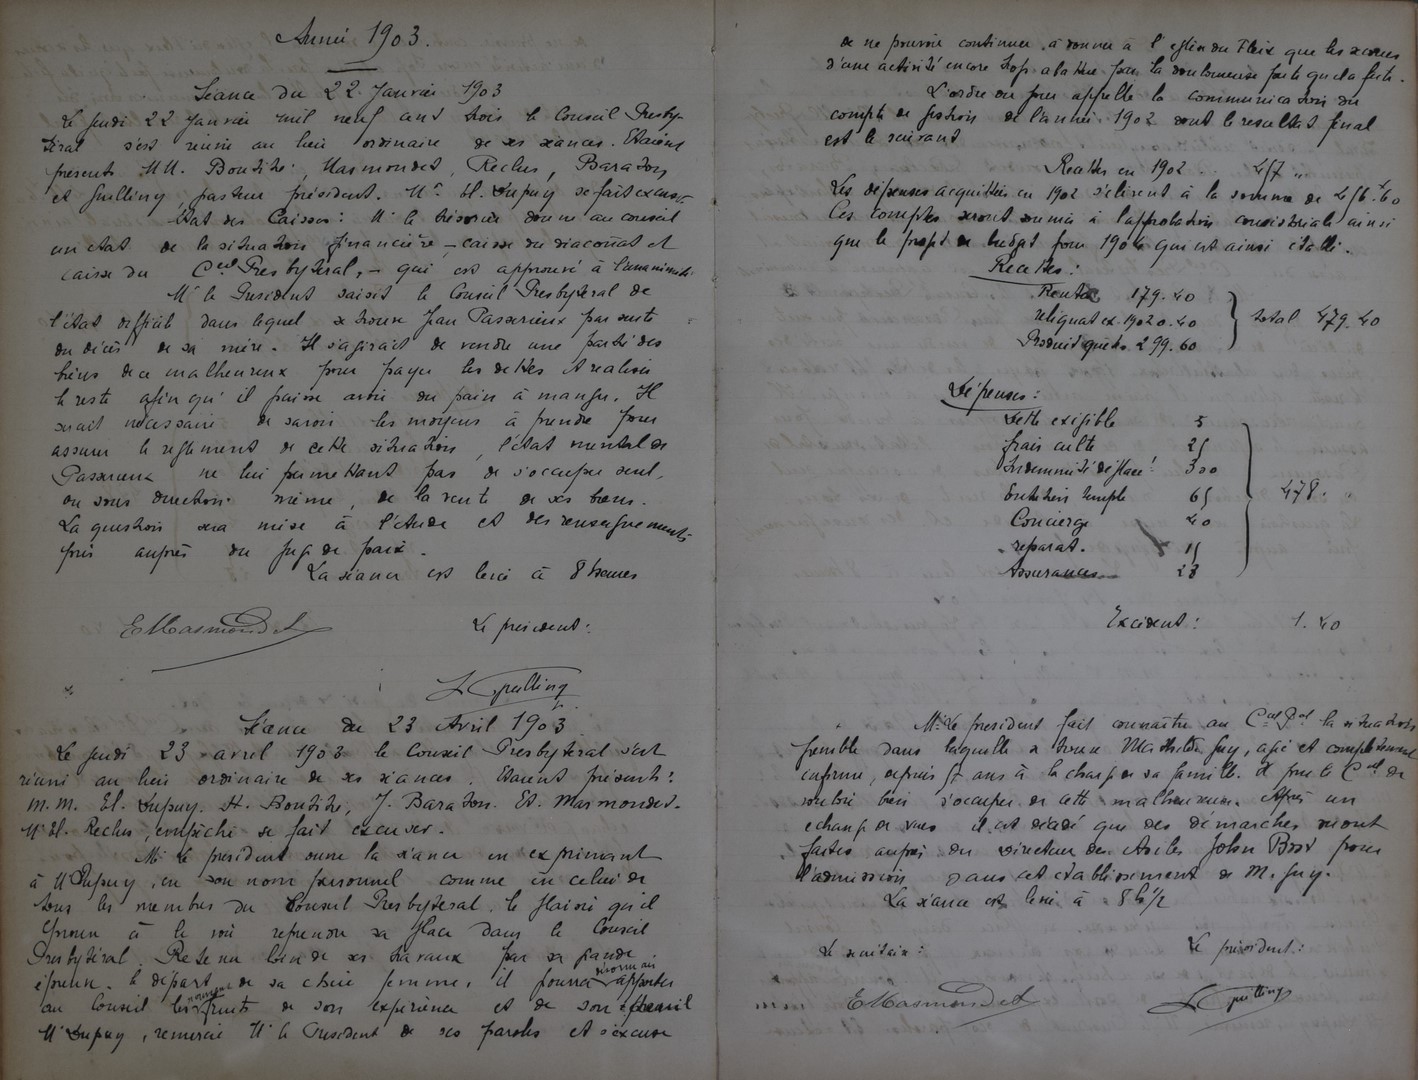 Année 1903.
Séance du 22 Janvier 1903
Le Jeudi 22 Janvier mil neuf cent trois le Conseil Presby-
téral s'est réuni au lieu ordinaire de ses séances. Etaient
présents MM. Boutite, Marmondet, Reclus, Baraton
et Guilling, pasteur président. Mr. H. Dupuy se fait excuser.
Etat des Caisses: Mr le trésorier donne au conseil
un état de la situation financière, - caisse du diaconat et
caisse du Cel Presbytéral, - qui est approuvé à l'unanimité
Mr le Président saisit le Conseil Presbytéral de
l'état difficile dans lequel se trouve Jean Passerieux par suite
du décès de sa mère. Il s'agirait de vendre une partie des
biens de ce malheureux pour payer les dettes et réaliser
le reste afin qu'il puisse avoir du pain à manger. Il
serait nécessaire de savoir les moyens à prendre pour
assurer le règlement de cette situation, l'état mental de
Passerieux ne lui permettant pas de s'occuper seul,
ou sous direction même, de la vente de ses biens.
La question sera mise à l'étude et des renseignements
pris auprès du juge de paix.
La séance est levée à 8 heures
E Marmondet Le président:
L Guilling
Séance du 23 Avril 1903
Le Jeudi 23 avril 1903 le Conseil Presbytéral s'est
réuni au lieu ordinaire de ses séances. Etaient présents:
M.M. El. Dupuy. H. Boutite, J. Baraton. Et. Marmondet.
Mr El. Reclus, empêché se fait excuser.
Mr le président ouvre la séance en exprimant
à Mr Dupuy, en son nom personnel comme en celui de
tous les membres du Conseil Presbytéral, le plaisir qu'il
éprouve à le voir reprendre sa place dans le Conseil
Presbytéral. Retenu loin de ses travaux par sa grande
épreuve, le départ de sa chère femme, il pourra désormais apporter
au Conseil les fruits de son expérience et de son
Mr Dupuy, remercie Mr le Président de ses paroles et s'excuse
de ne pouvoir continuer à donner à l'église du Fleix que les
d'une activité encore trop abattue par la douloureuse perte qu'il a faite.
L'ordre du jour appelle la communication du
compte de gestion de l'année 1902 dont le résultat final
est le suivant
Recettes en 1902 . 417 "
Les dépenses acquittées en 1902 s'élèvent à la somme de 416.60
Ces comptes seront soumis à l'approbation consistoriale ainsi
que le projet de budget pour 1904 qui est ainsi établi.
Recettes:
Rentes 179.40
reliquat ex. 1902 0.40 total 479.40
Produit quêtes 299.60
Dépenses:
Dette exigible 5
frais culte 25
Indemnité déplact 300
Entretien temple 65 478. "
Concierge 40
réparat. 15
Assurances 28
Excédent: 1.40
Mr le président fait connaître au Cel Pal la situation
pénible dans laquelle se trouve Mathilde Guy, âgée et complètement
infirme, depuis 57 ans à la charge de sa famille. Il prie le Cel de
vouloir bien s'occuper de cette malheureuse. Après un
échange de vues il est décidé que des démarches seront
faites auprès du Directeur des Asiles John Bost pour
l'admission dans cet établissement de M. Guy.
La séance est levée à 8h 1/2
Le secrétaire: Le président:
E Marmondet L Guilling